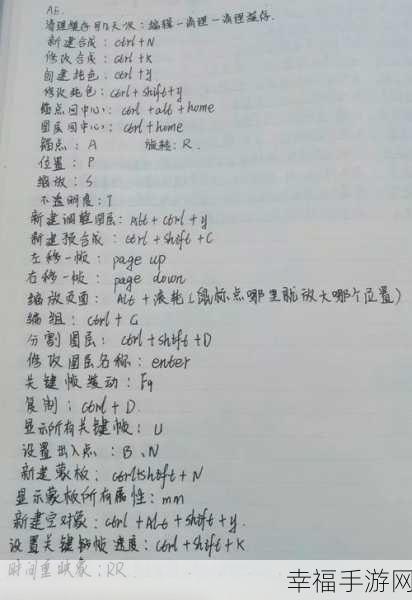 AE.
清理缓存每几天一次：编辑－清理－清理缓存.
新建合成：ctrl+N
修改合成：ctrl+K
创建纯色：ctrl+y
修改纯色：ctrl+shift+y
锚点回中心：ctrl+alt+home
图层回中心：ctrl+home
锚点：A 旋转：R.
位置：P
缩放：S
不透明度：T
新建调整图层：Alt+ctrl+y
新建预合成：ctrl+shift+C
左移一帧：page up
右移一帧：page down
缩放页面：Alt+滚轮(鼠标点哪里就放大哪个位置)
编组：ctrl+G
分割图层：ctrl+shift+D
修改图层名称：enter
关键帧缓动：F9
复制：ctrl+D.
显示所有关键帧：U
设置出入点：B、N
新建蒙板：ctrl+shift+N
显示蒙板所有属性：mm
新建空对象：ctrl+Alt+shift+y.
设置关键帧速度：ctrl+shift+K
时间重映象：RR
幸福手游网